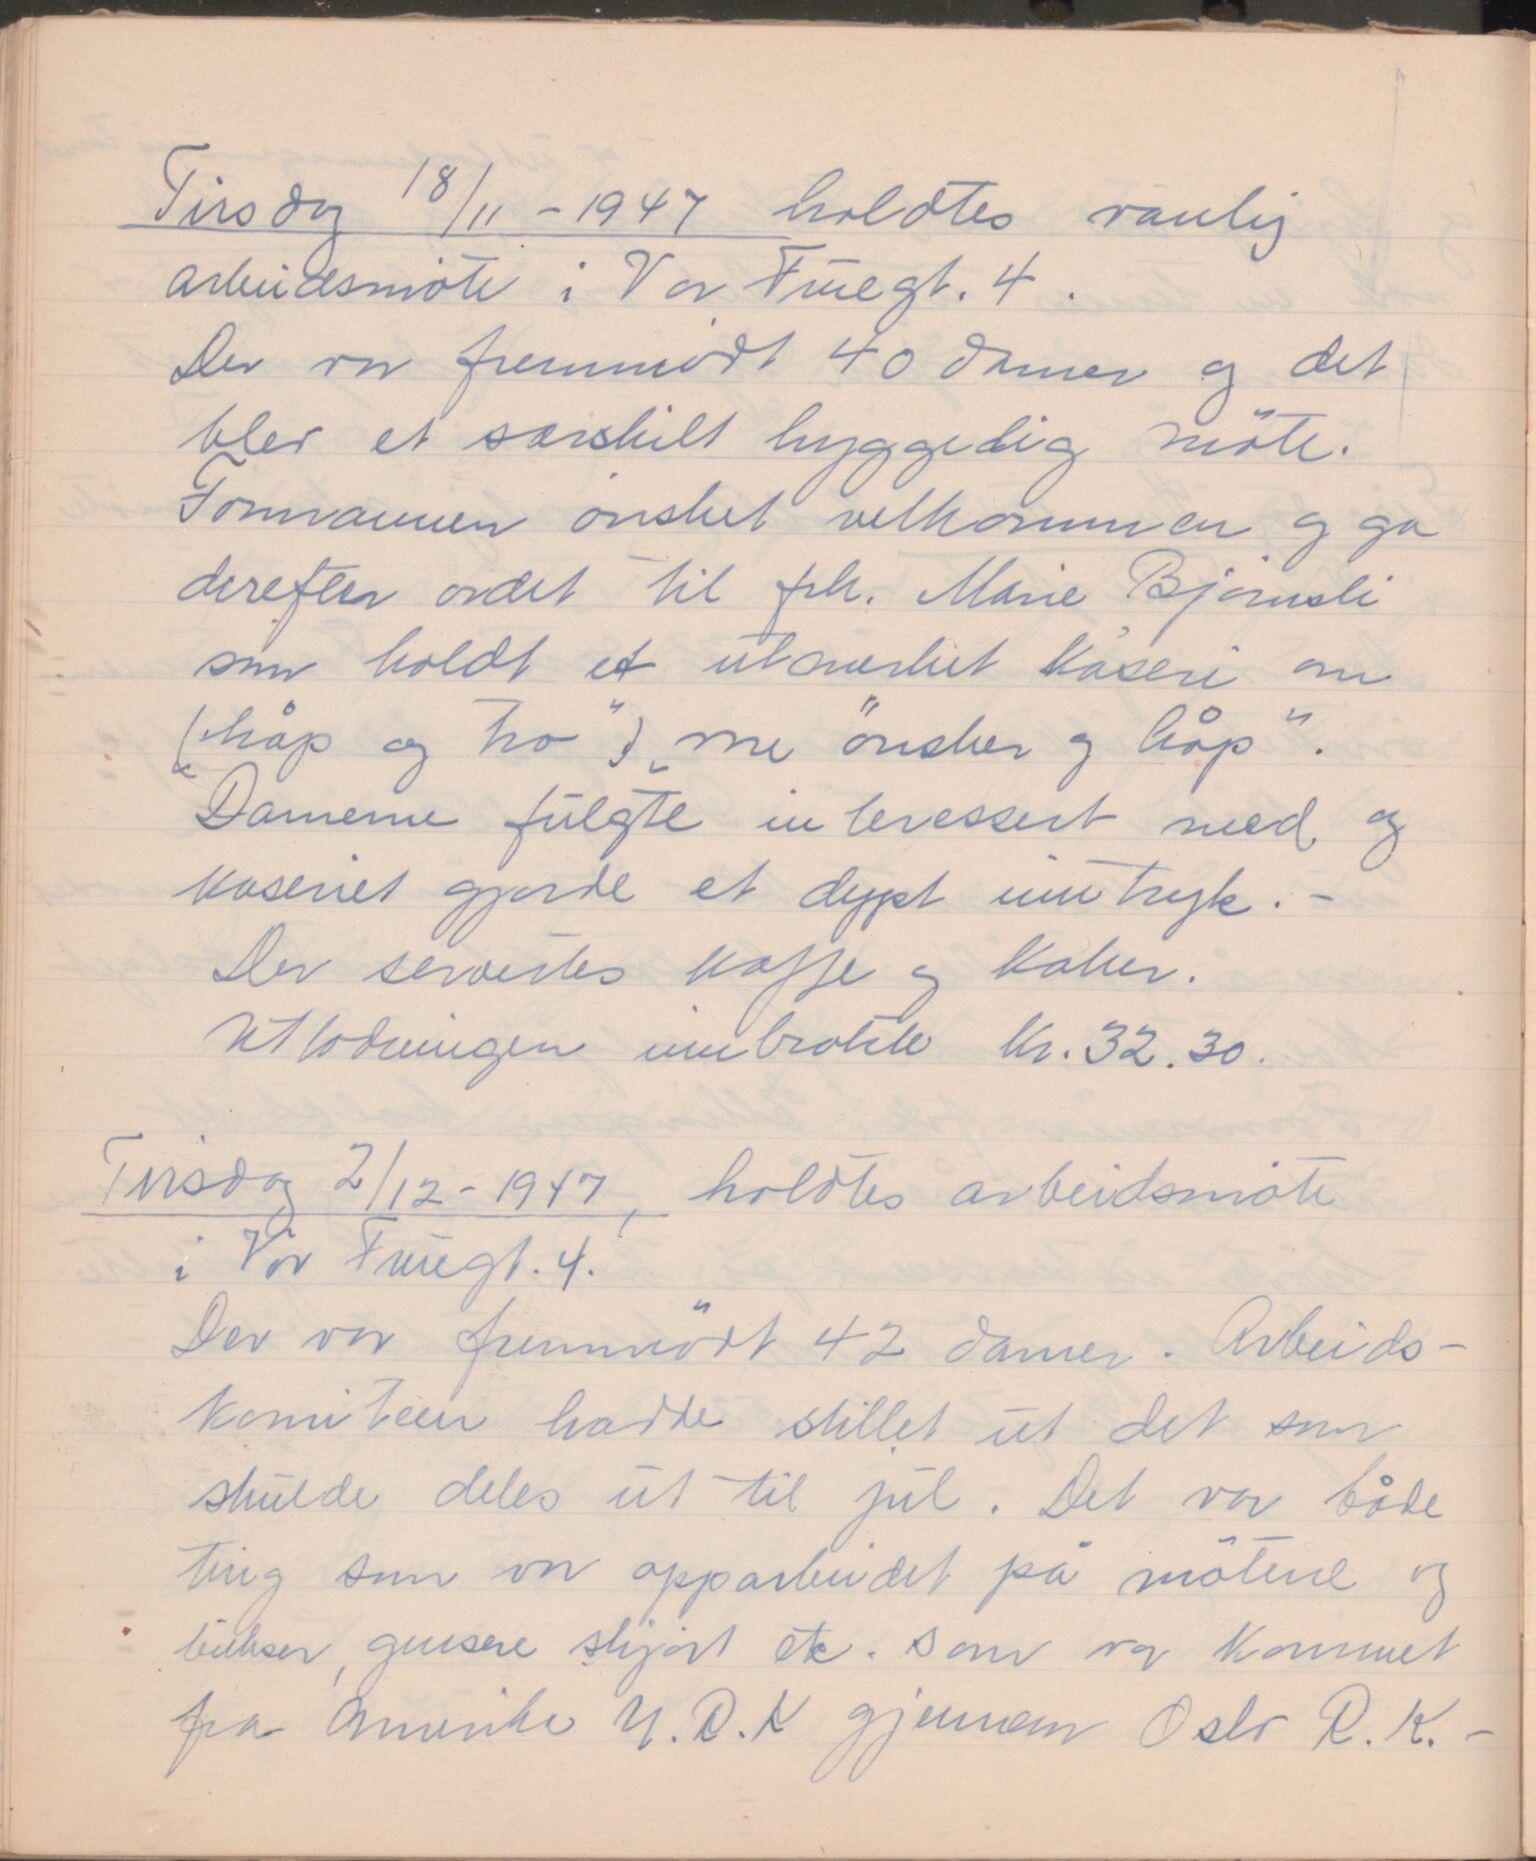 Tirsdag 18/11 - 1947 holdtes vanlig
arbeidsmöte i Vor Fruegt. 4.
Der var fremmödt 40 damer og det
blev et særskilt hyggedig möte.
Formannen önsket velkommen og ga
derefter ordet til frk. Marie Björnsli
som holdt et utmerket kåseri om
("håp og tro") "me önsker og håp".
Damerne fulgte interessert med og
kaseriet gjorde et dypt inntryk. -
Der servertes kaffe og kaker.
Utlodningen innbrakte kr. 32.30.
Tirsdag 2/12 - 1947, holdtes arbeidsmöte
i Vor Fruegt. 4.
Der var fremmödt 42 damer. Arbeids-
komiteen hadde stillet ut det som
skulde deles ut til jul. Det var både
ting som var opparbeidet på mötene og
bukser, gensere skjört etc. som var kommet
fra Amerika U.R.K gjennem Oslo R.K. -